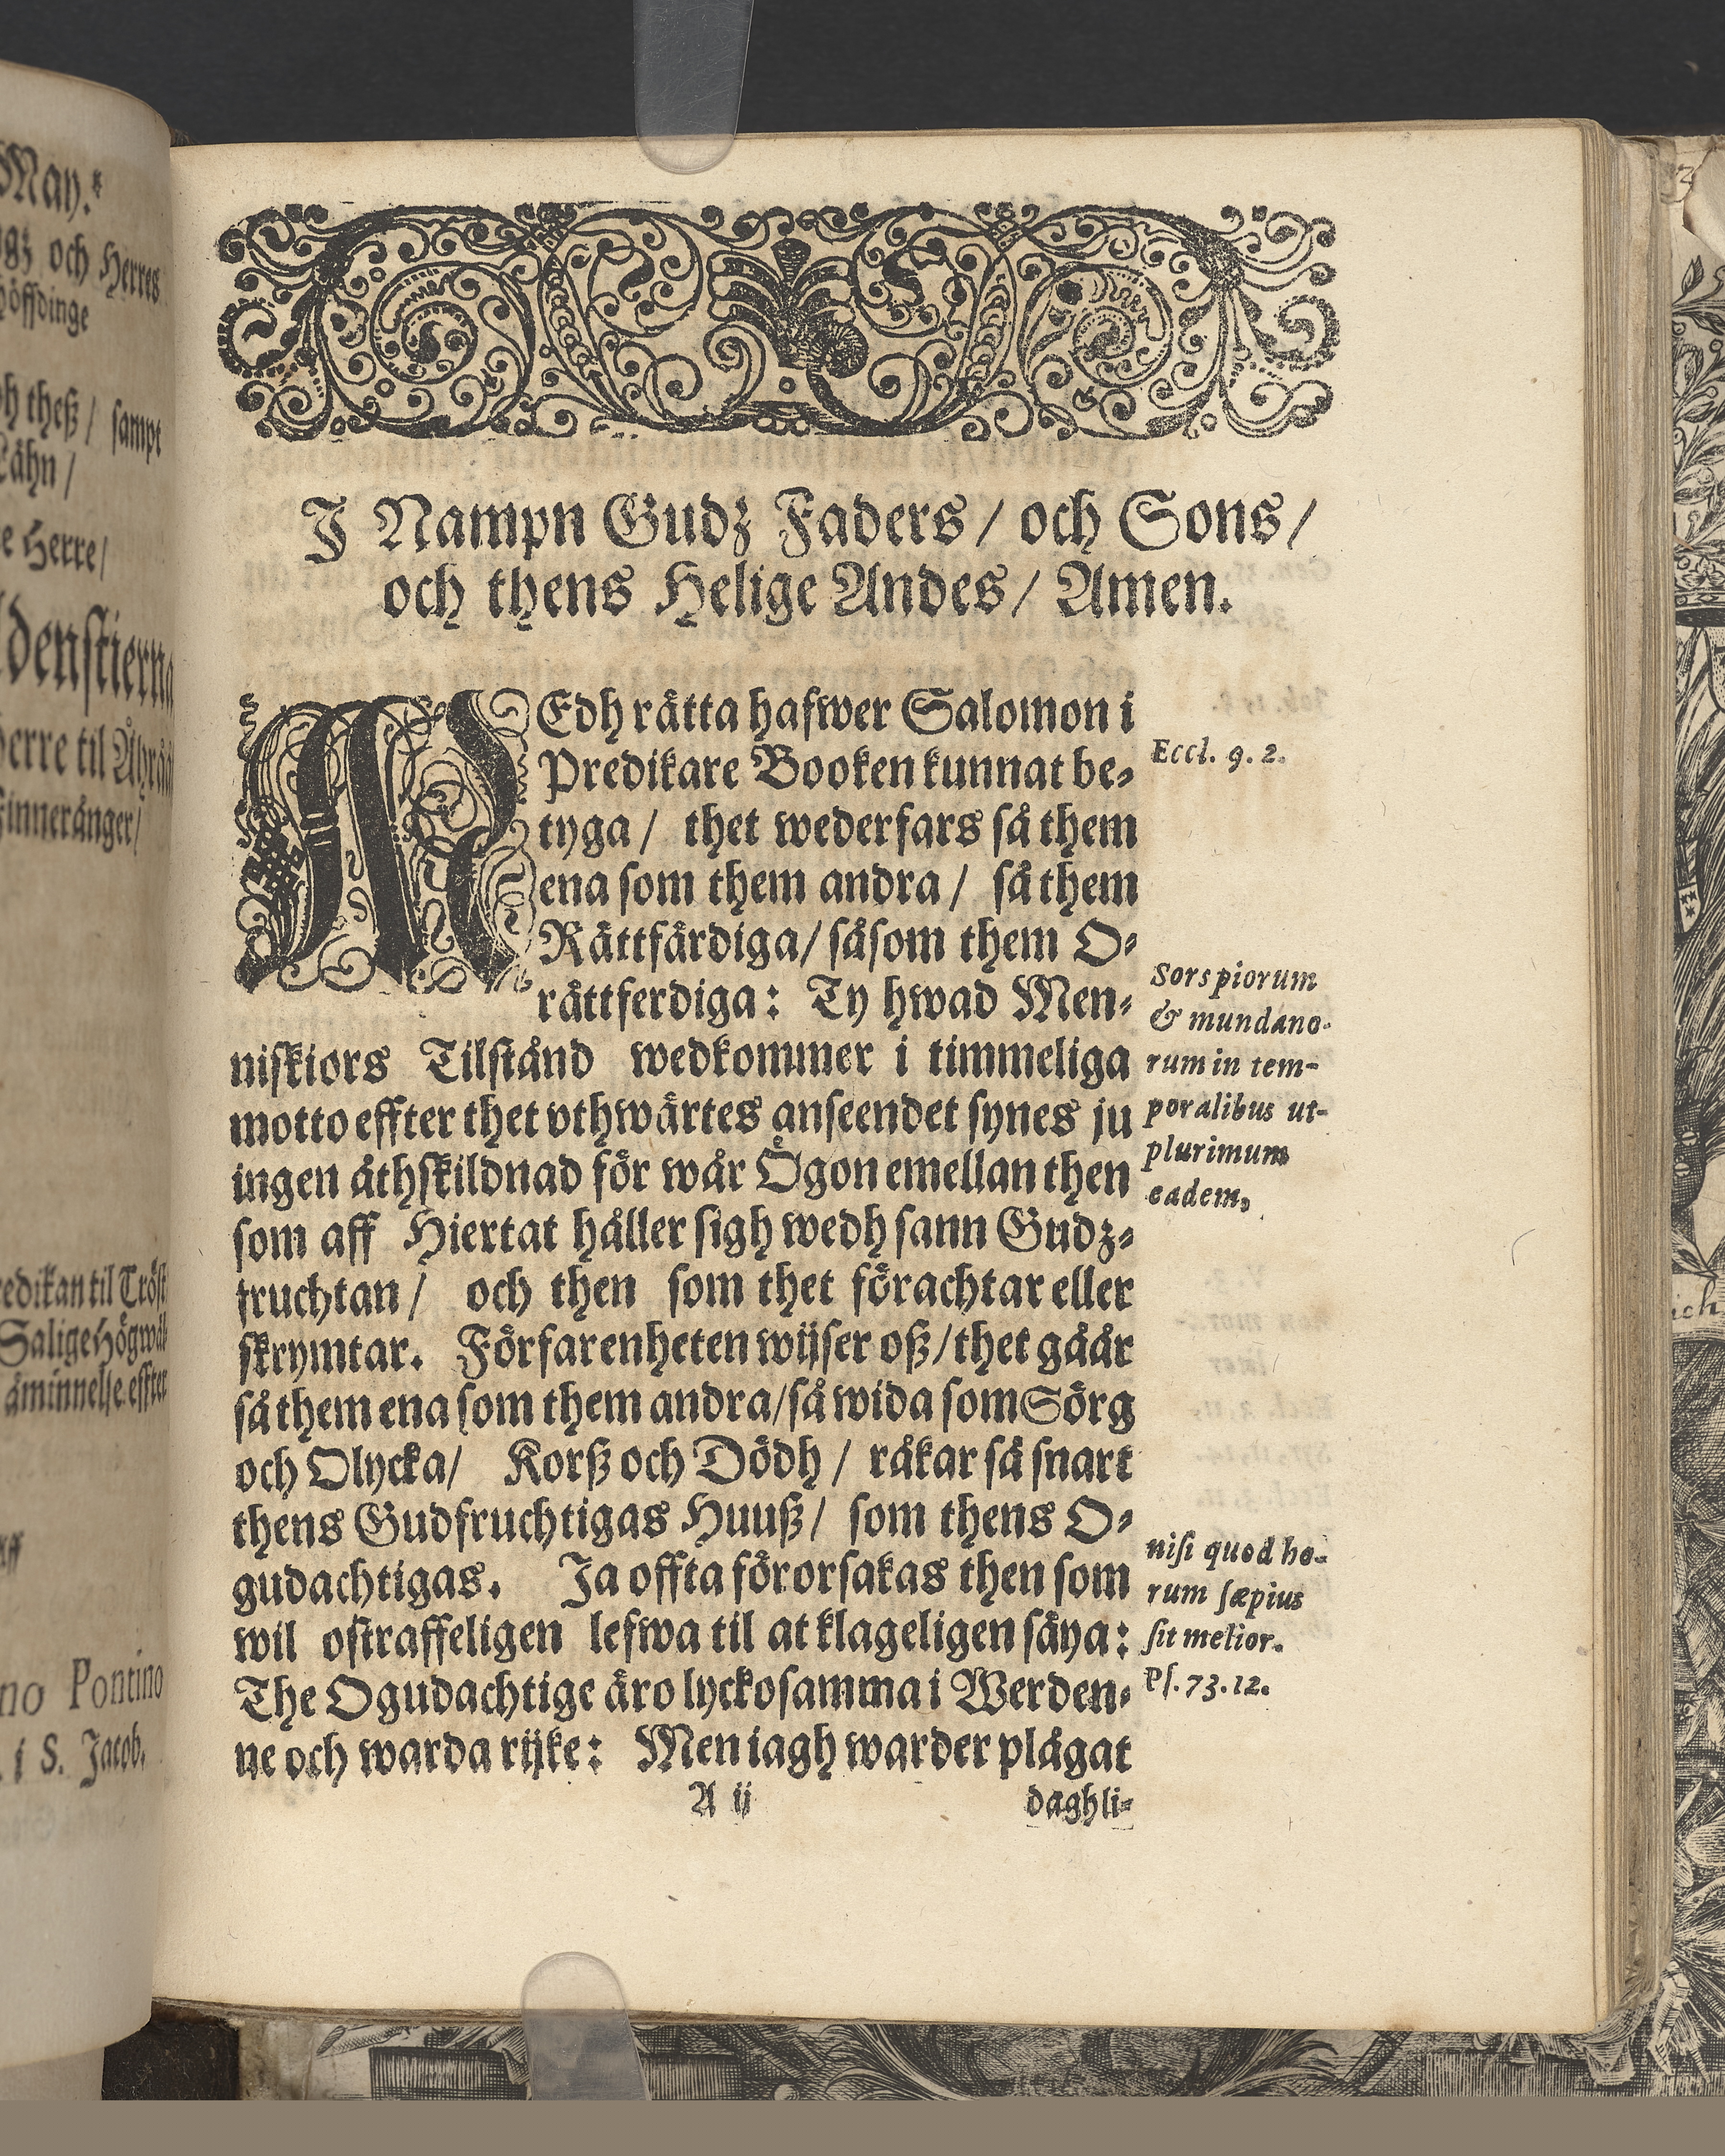 May.
och Herres
höffdinge
theß / sampt
Lähn /
Herre /
erre til
Finneränger /
Predikan til Tröst
Salige Högwäl-
åminnelse effter
Pontino
i S. Jacob.
J Nampn Gudz Faders / och Sons /
och thens Helige Andes / Amen.
MEdh rätta hafwer Salomon i
Predikare Booken kunnat be-
tyga / thet wederfars så them
ena som them andra / så them
Rättfärdiga / såsom them O-
rättferdiga: Ty hwad Men-
niskiors Tilstånd wedkommer i timmeliga
motto effter thet vthwärtes anseendet synes ju
ingen åthskildnad för wår Ögon emellan then
som aff Hiertat håller sigh wedh sann Gudz-
fruchtan / och then som thet förachtar eller
skrymtar. Förfarenheten wijser oß / thet gåår
så them ena som them andra / så wida som Sörg
och Olycka / Korß och Dödh / råkar så snart
thens Gudfruchtigas Huuß / som thens O-
gudachtigas. Ja offta förorsakas then som
wil ostraffeligen lefwa til at klageligen säya:
The Ogudachtige äro lyckosamma i Werden-
ne och warda rijke: Men iagh warder plågat
A ij daghli-
Eccl. 9. 2.
Sors piorum
& mundano-
rum in tem-
poralibus ut-
plurimum
eadem,
nisi quod ho-
rum sæpius
sit melior.
Ps. 73. 12.